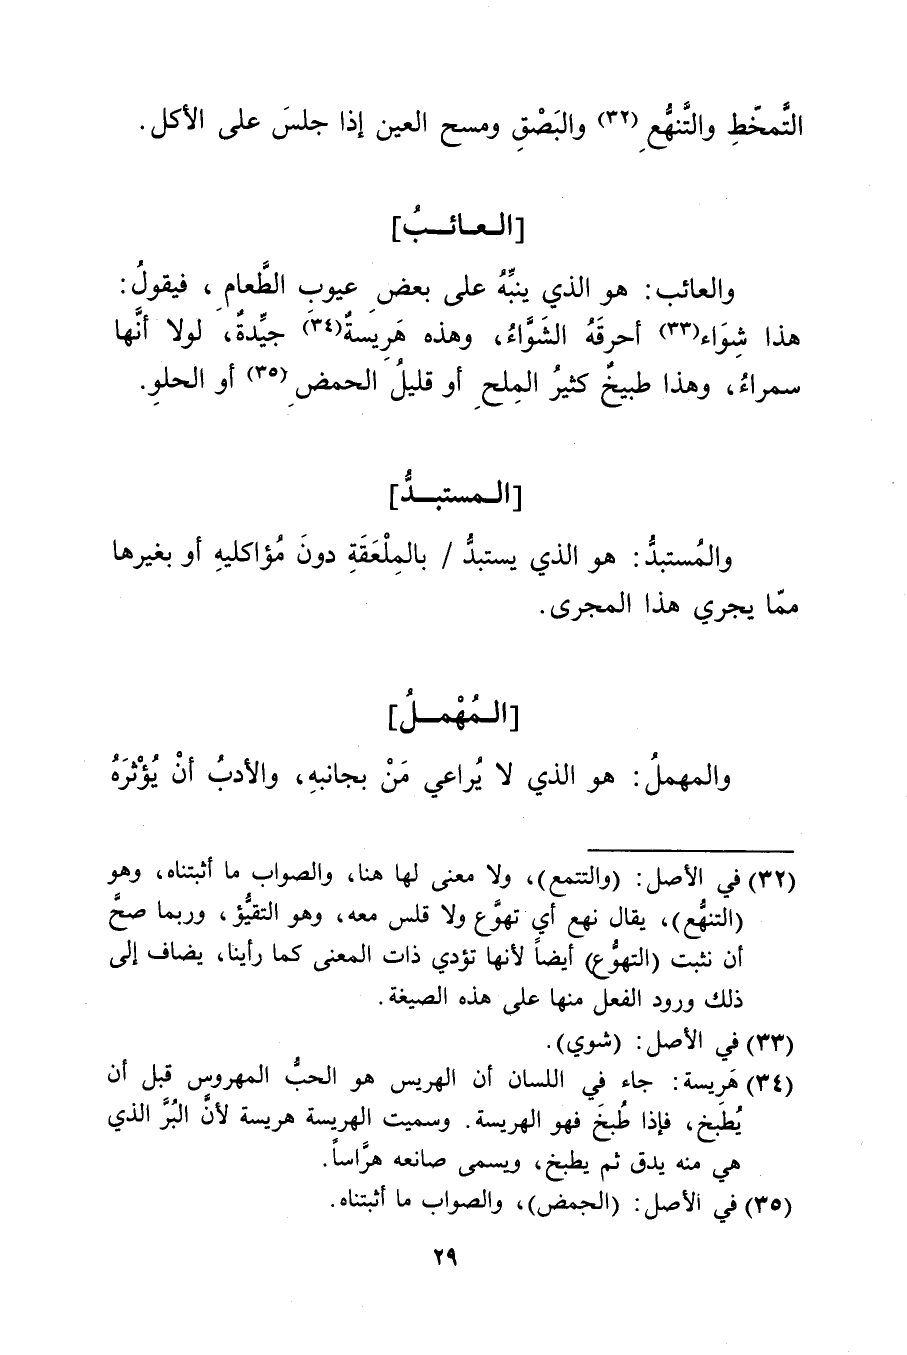 التَّمخّطِ والتَّنهُّعِ (٣٢) والبَصْقِ ومسح العين إذا جلسَ على الأكل.
[العائبُ]
والعائب: هو الذي ينبِّهُ على بعضِ عيوبِ الطَّعامِ، فيقولُ:
هذا شِوَاء(٣٣) أحرقَهُ الشَوَّاءُ، وهذه هَرِيسةٌ(٣٤) جيِّدةٌ، لولا أنَّها
سمراءُ، وهذا طبيخٌ كثيرُ المِلحِ أو قليلُ الحمضِ (٣٥) أو الحلوِ.
[المستبدُّ]
والمُستبدُّ: هو الذي يستبدُّ / بالمِلْعَقَةِ دونَ مُؤاكليهِ أو بغيرها
ممّا يجري هذا المجرى.
[المُهْملُ]
والمهملُ: هو الذي لا يُراعي مَنْ بجانبهِ، والأدبُ أنْ يُؤْثرَهُ
(٣٢) في الأصل: (والتتمع)، ولا معنى لها هنا، والصواب ما أثبتناه، وهو
(التنهُّع)، يقال نهع أي تهوَّع ولا قلس معه، وهو التقيُّؤ، وربما صحَّ
أن نثبت (التهوُّع) أيضاً لأنها تؤدي ذات المعنى كما رأينا، يضاف إلى
ذلك ورود الفعل منها على هذه الصيغة.
(٣٣) في الأصل: (شوي).
(٣٤) هَرِيسة: جاء في اللسان أن الهريس هو الحبُّ المهروس قبل أن
يُطبخ، فإذا طُبخَ فهو الهريسة. وسميت الهريسة هريسة لأنَّ البُرَّ الذي
هي منه يدق ثم يطبخ، ويسمى صانعه هرَّاساً.
(٣٥) في الأصل: (الجمض)، والصواب ما أثبتناه.
٢٩